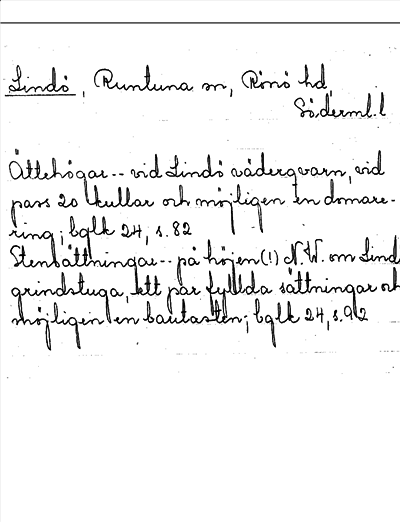 Lindö, Runtuna sn, Rönö hd,
Söderml. l
Ättehögar -- vid Lindö väderqvarn, vid
pass 20 kullar och möjligen en domare-
ring; bglk 24, s. 82
Stensättningar -- på höjen (!) N.W. om Lind
grindstuga, ett par fyllda sättningar och
möjligen en bautasten; bglk 24, s. 92